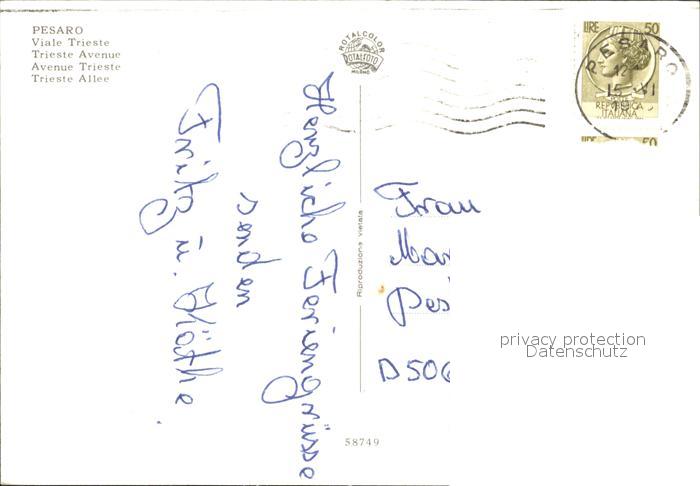 PESARO
Viale Trieste
Trieste Avenue
Avenue Trieste
Trieste Allee
ROTALCOLOR
ROTALFOTO
MILANO
LIRE 50
PESARO
12
15 VI
19
REPUBBLICA
ITALIANA
50
Herzliche Feriengrüsse
senden
Fritz u. Käthe.
Riproduzione vietata
Frau
Mar
Pes
D 506
privacy protection
Datenschutz
58749